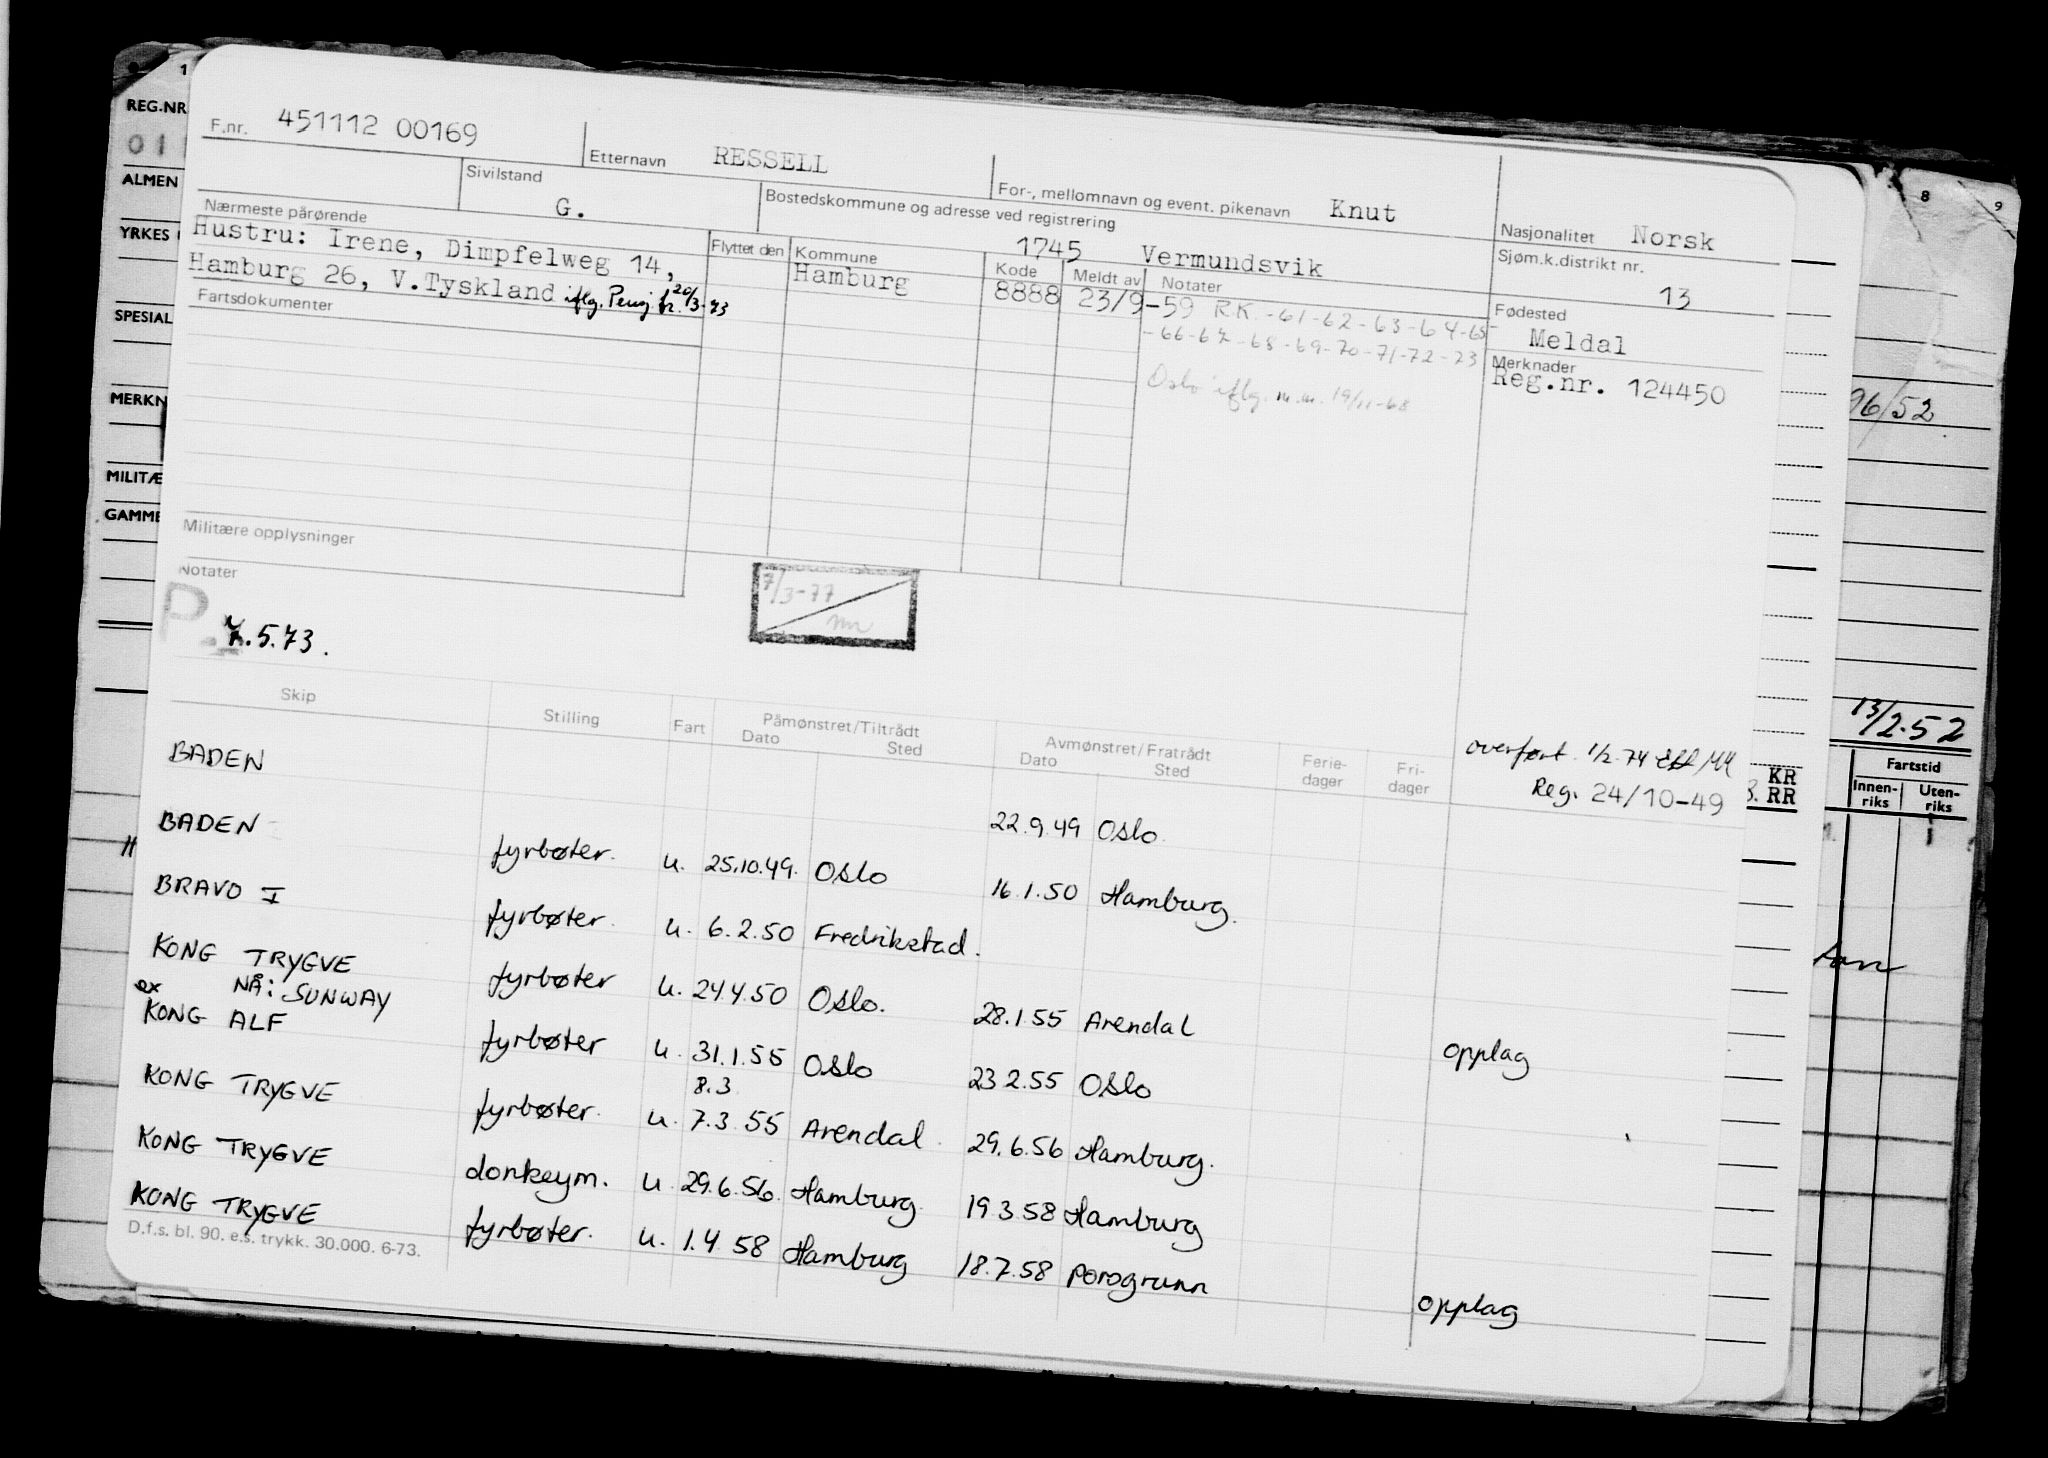 F.nr. 451112 00169 Etternavn RESSELL For-, mellomnavn og event. pikenavn Knut Nasjonalitet Norsk
Sivilstand G. Bostedskommune og adresse ved registrering 1745 Vermundsvik Sjøm.k.distrikt nr. 13
Nærmeste pårørende
Hustru: Irene, Dimpfelweg 14,
Hamburg 26, V.Tyskland iflg. Pensj. fr. 20/3-73
Flyttet den Kommune Kode Meldt av Notater
Hamburg 8888 23/9-59 R.K. -61-62-63-64-65-
-66-67-68-69-70-71-72-73
Oslo iflg. m.m. 19/11-68
Fødested
Meldal
Merknader
Reg.nr. 124450
Fartsdokumenter
Militære opplysninger
Notater
P.
.5.73.
7/3-77
overført 1/2-74
Reg. 24/10-49
Skip Stilling Fart Påmønstret/Tiltrådt Avmønstret/Fratrådt Ferie-dager Fri-dager
Dato Sted Dato Sted
BADEN 22.9.49 Oslo.
BADEN fyrbøter. u. 25.10.49. Oslo 16.1.50 Hamburg.
BRAVO I fyrbøter. u. 6.2.50 Fredrikstad.
KONG TRYGVE fyrbøter u. 24.4.50 Oslo. 28.1.55 Arendal opplag
ex NÅ: SUNWAY
KONG ALF fyrbøter u. 31.1.55 Oslo 23.2.55 Oslo
8.3
KONG TRYGVE fyrbøter. u. 7.3.55 Arendal. 29.6.56 Hamburg.
KONG TRYGVE donkeym. u. 29.6.56. Hamburg. 19.3.58 Hamburg
KONG TRYGVE fyrbøter. u. 1.4.58 Hamburg 18.7.58 Porsgrunn opplag
D.f.s. bl. 90. e.s. trykk. 30.000. 6-73.
1
REG.NR
01
ALMEN
YRKES
SPESIAL
MERKN
MILITÆ
GAMME
8 9
96/52
13/2-52
KR
RR
Fartstid
Innen-riks Uten-riks